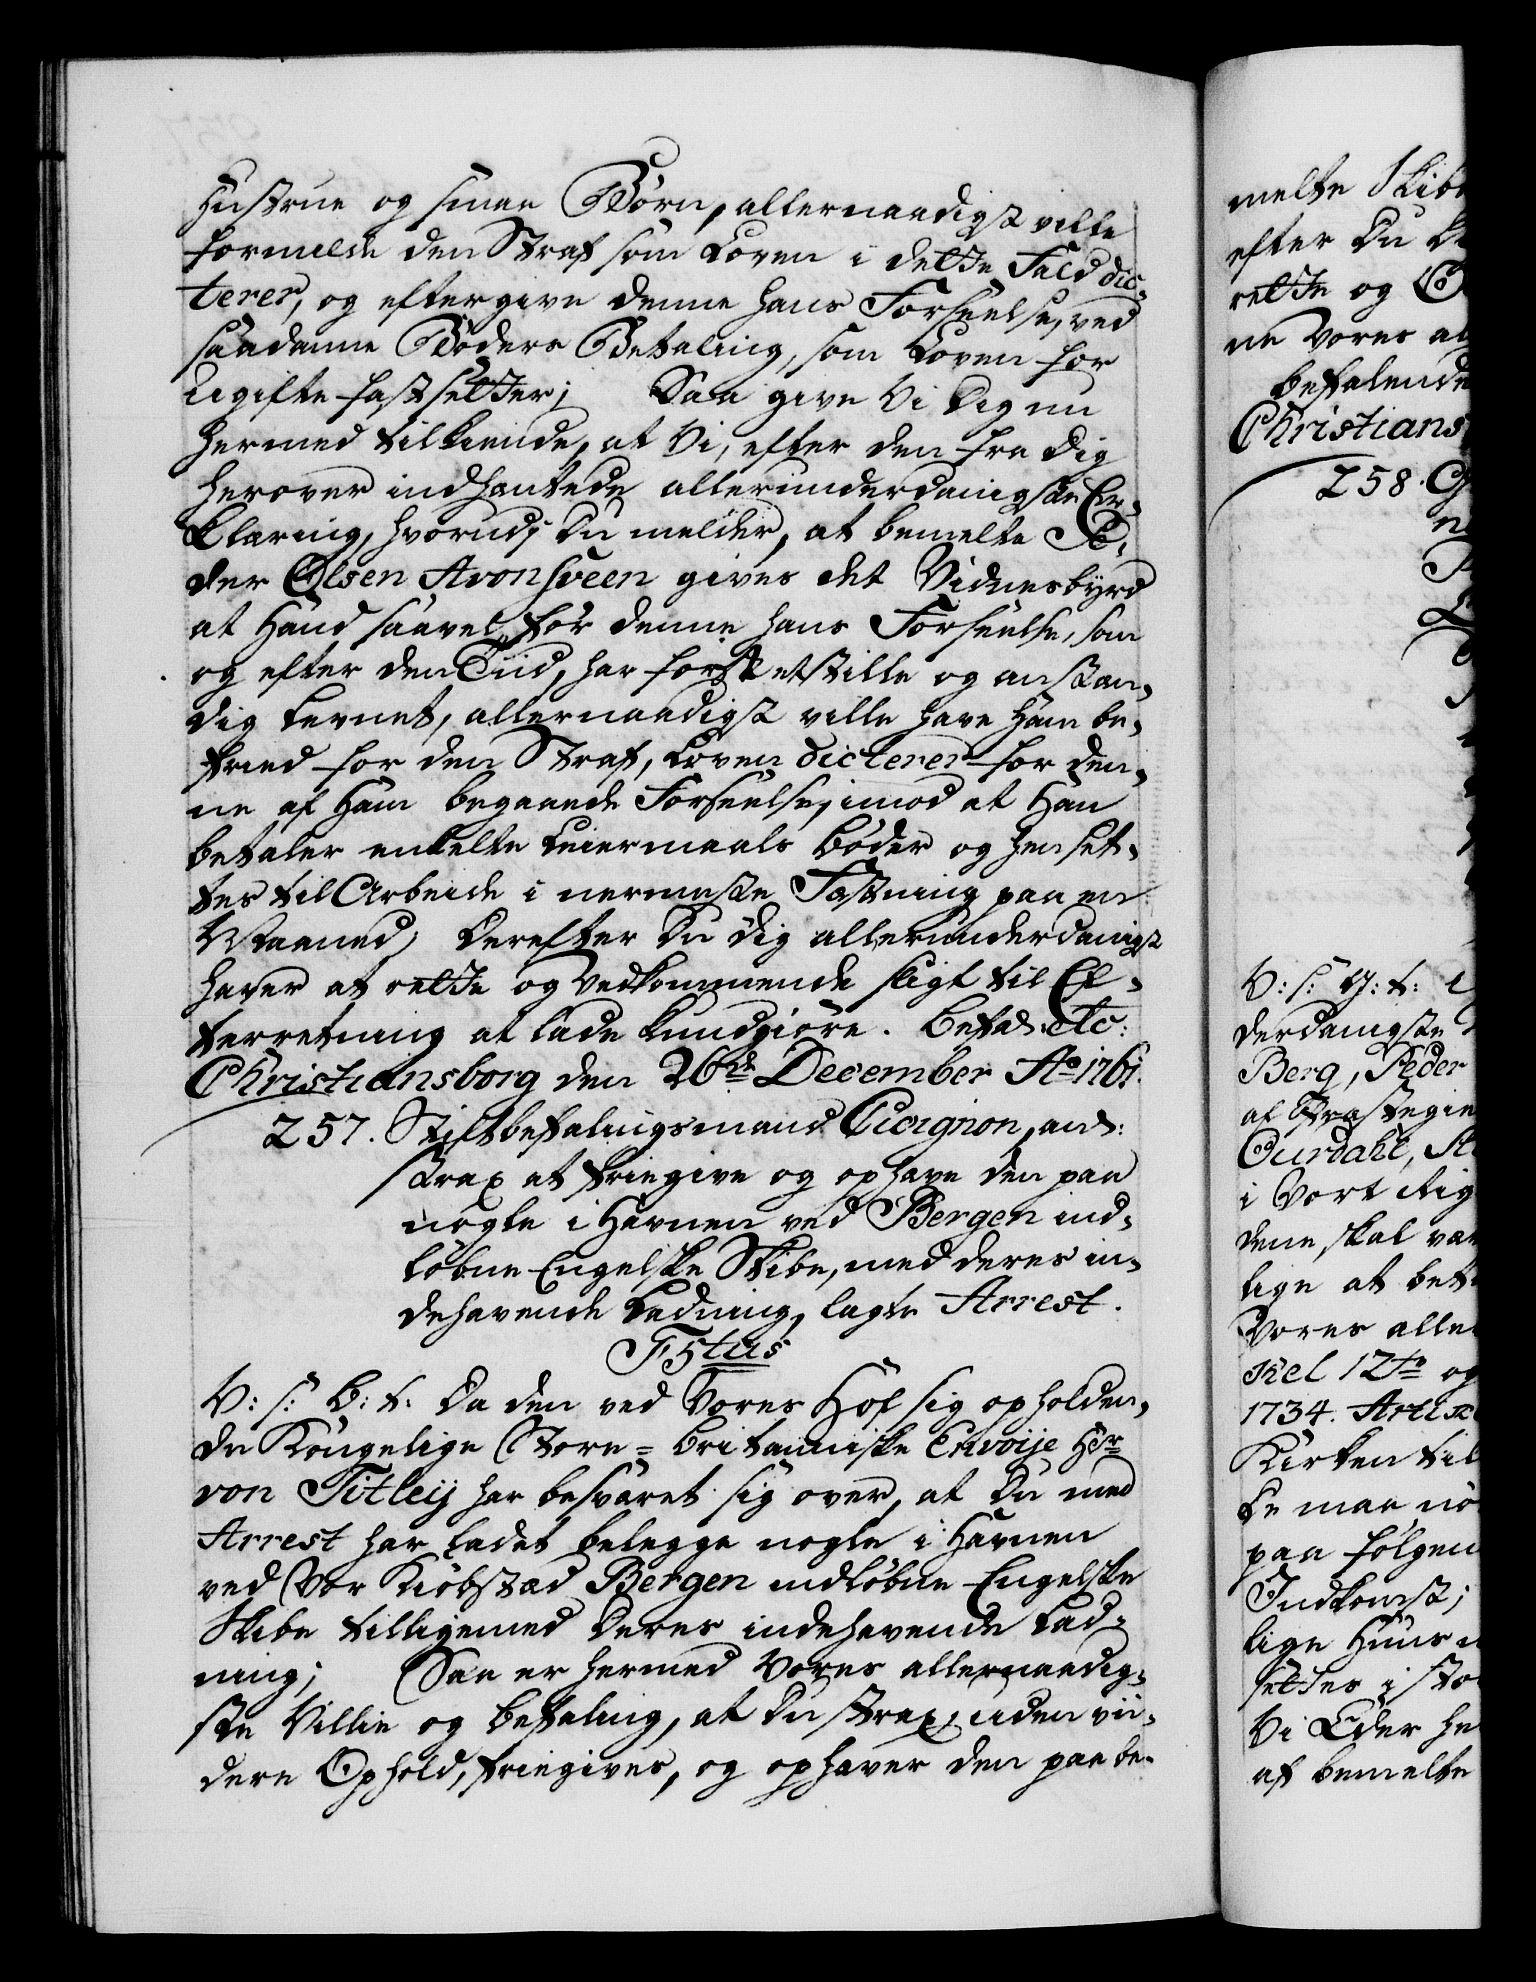 Hustrue og smaa Børn, allernaadigst ville
formilde den Straf som Loven i dette Fald dic-
terer, og eftergive denne hans Forseelse, ved
saadanne Bøders Betaling, som Loven for
Ugifte fastsetter; Saa give Vi Dig nu
hermed tilkiende, at Vi, efter den fra Dig
herover indhentede allerunderdanigste Er-
klæring, hvorudi Du melder, at bemelte Pe-
der Olsen Aronsveen gives det Vidnesbyrd
at Hand saavel før denne hans Forseelse, som
og efter den Tiid, har ført et stille og anstæn-
dig Levnet, allernaadigst ville have Ham be-
friid for den Straf, Loven dicterer for den-
ne af Ham begaaede Forseelse, imod at Han
betaler enkelte Leiermaals Bøder og hensæt-
tes til Arbeide i nermeste Fæstning paa en
Maaned; Derefter Du Dig allerunderdanigst
haver at rette og Vedkommende sligt til Ef-
terretning at lade kundgiøre. Befal. etc:
Christiansborg den 26de December Ao 1761.
257. Stiftbefalingsmand Cicignon, an:
strax at friegive og ophæve den paa
nogle i Havnen ved Bergen ind-
løbne Engelske Skibe, med deres in-
dehavende Ladning, lagte Arrest.
F5tus
V: S: B: t: Da den ved Vores Hof sig opholden-
de Kongelige Store-Britanniske Envoije Hr
von Titleij har besværet sig over, at Du med
Arrest har ladet belegge nogle i Havnen
ved Vor Kiøbstæd Bergen indløbne Engelske
Skibe tilligemed Deres indehavende Lad-
ning; Saa er hermed Vores allernaadig-
ste Villie og befaling, at Du strax, uden vii-
dere Ophold, friegiver, og ophæver den paa be-
melte Skibe
efter Du D
rette og
ne Vores al
befalende
Christians
258.
V: S: G: t:
derdanigste
Berg, Peder
af Præstegie
Ourdahl,
i Vort Rig
dene skal væ
lige at bet
Vores alle
kel 12te og
1734. Artic
Kirken til
De maa no
paa følgen
Indkomst;
lige Huus
settes i sto
Vi Eder he
af bemelte